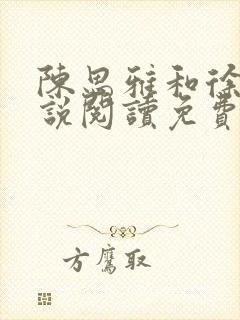 陳思雅和徐
說閱讀免費
方鷹取